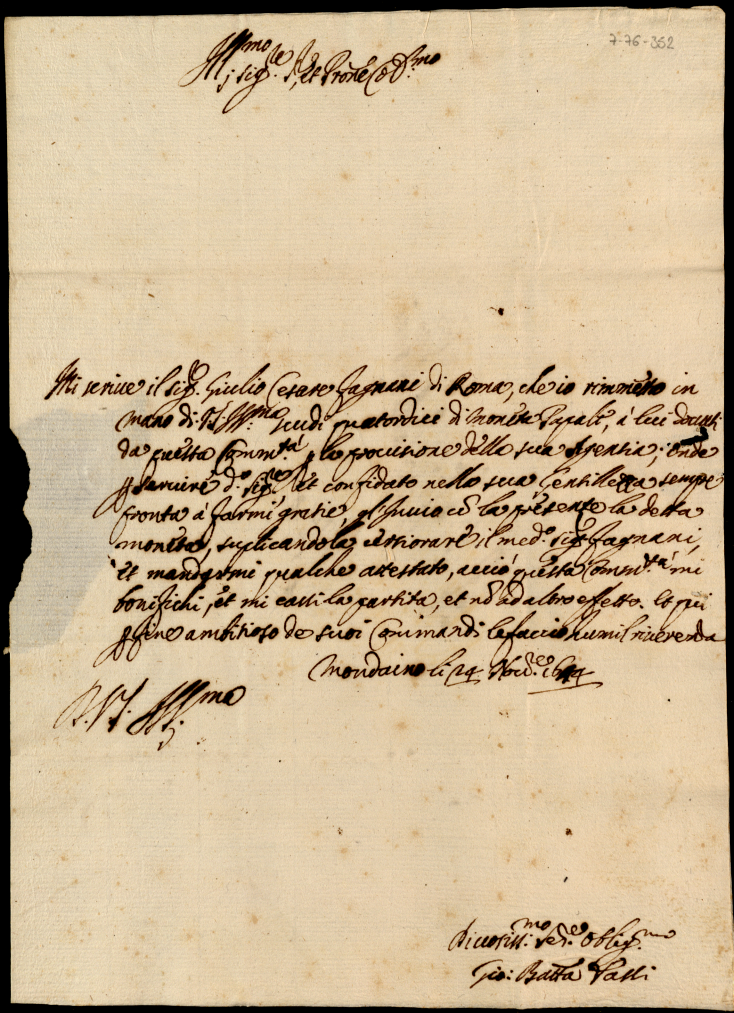 7-76-352
Ill.mo Sig.re S.re et Pron.e Col.mo
Mi scrive il sig.re Giulio Cesare Fagnani di Roma, che io rimmetto in
mano di V.S. Ill.ma scudi quatordici di moneta Papale, à lui dovuti
da questa Comm.tà p la provisione della sua Agentia; onde
p servire d.o sig.re et confidato nella sua gentilezza sempre
pronta à farmi gratie, gl'invio cõ la presente la detta
moneta, suplicandola certiorare il med.o sig.re Fagnani,
et mandarmi qualche attestato, acciò questa Comm.tà mi
bonifichi, et mi cassi la partita, et nõ ad altro effetto. Et qui
p fine ambitioso de suoi Comandi le faccio humil riverenza
Mondaino li 24 Nov.e
D. V.S. Ill.ma
Divotiss.mo Se.re Oblig.mo
Gio: Batta